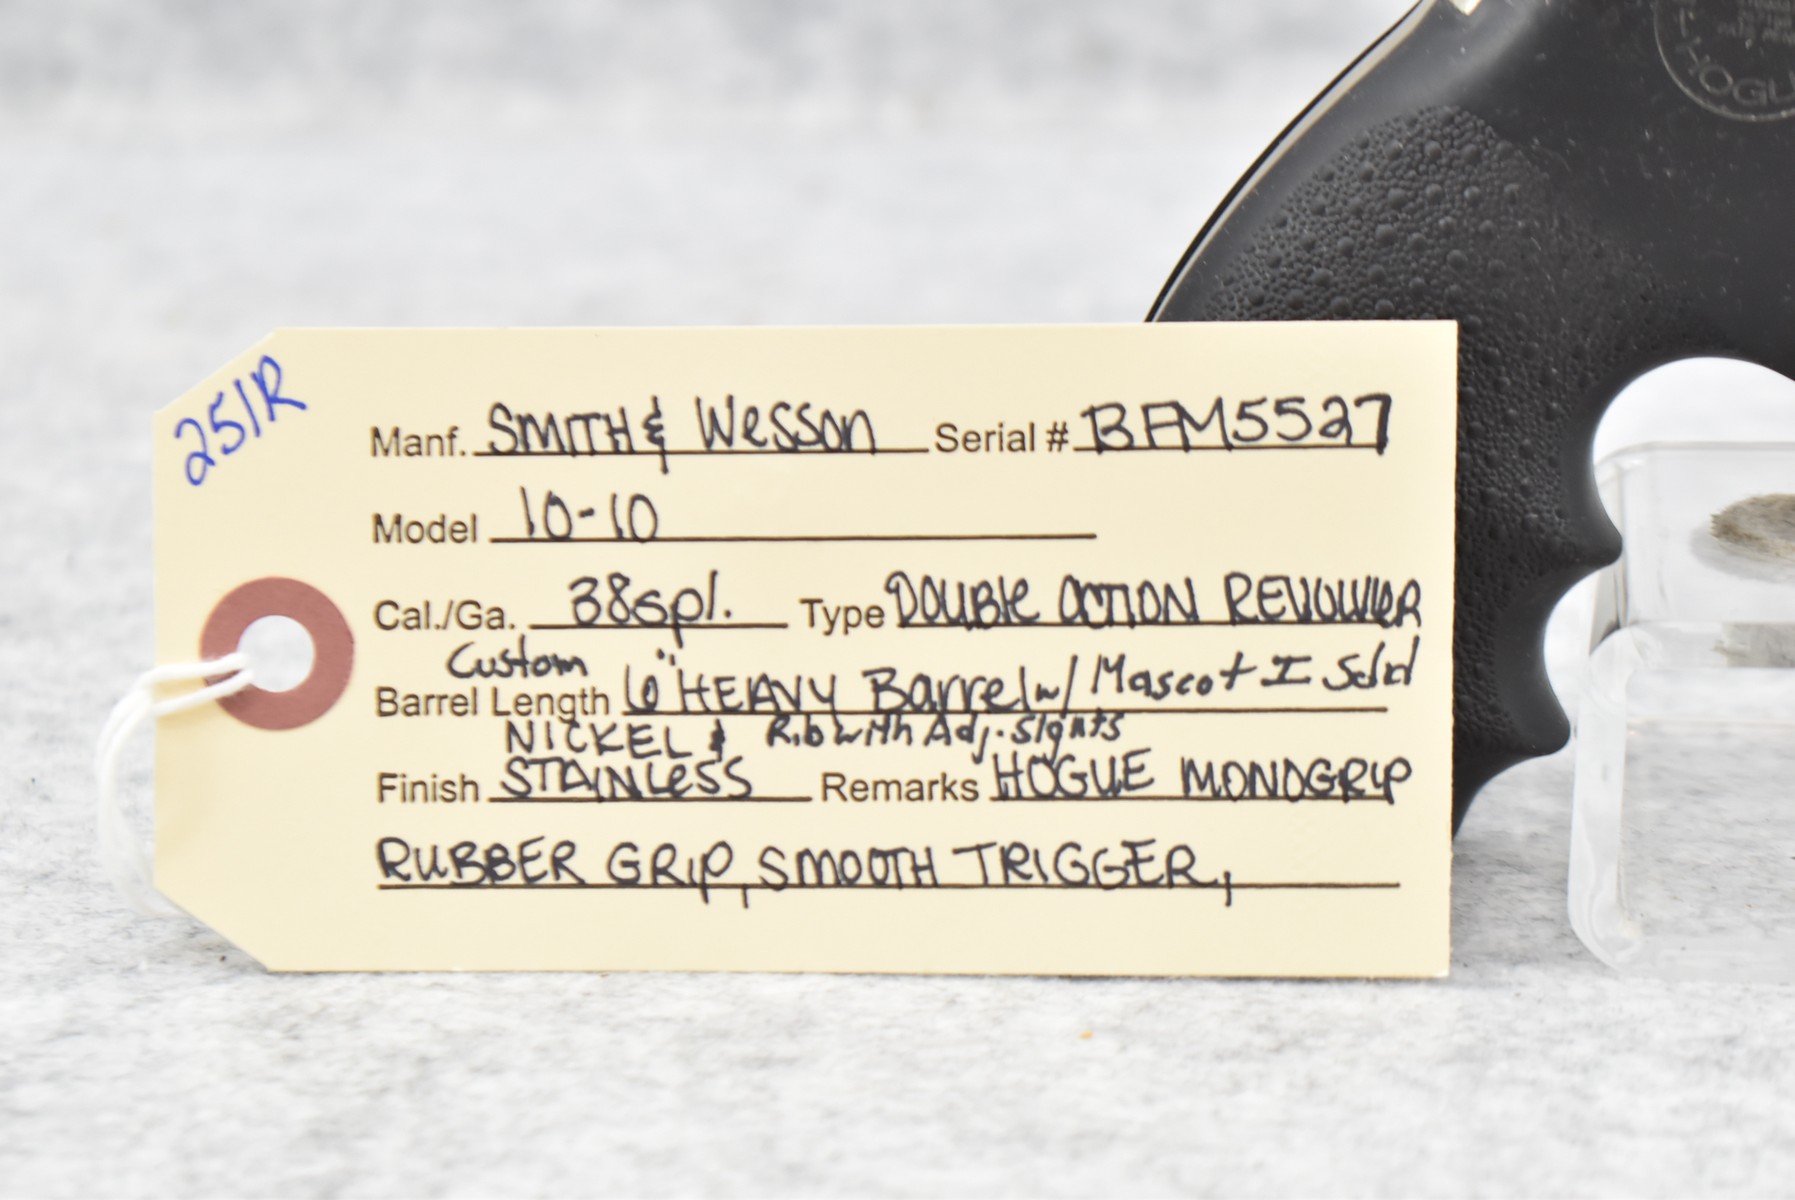 HOGUE
251R
Manf. SMITH & Wesson Serial # BFM5527
Model 10-10
Cal./Ga. 38spl. Type DOUBLE ACTION REVOLVER
Custom
Barrel Length 6" HEAVY Barrel w/ Mascot I Solid
NICKEL & Rib with Adj. Sights
Finish STAINLESS Remarks HOGUE MONOGRIP
RUBBER GRIP, SMOOTH TRIGGER,